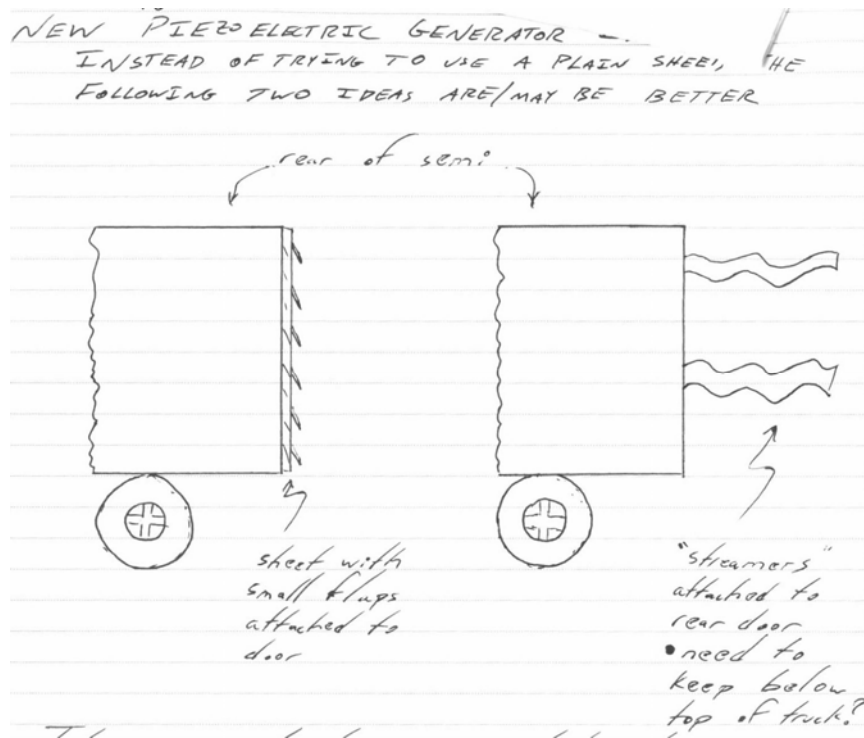 NEW PIEZOELECTRIC GENERATOR -.
INSTEAD OF TRYING TO USE A PLAIN SHEET, THE
FOLLOWING TWO IDEAS ARE/MAY BE BETTER
rear of semi
sheet with
small flaps
attached to
door
"streamers"
attached to
rear door
• need to
keep below
top of truck?